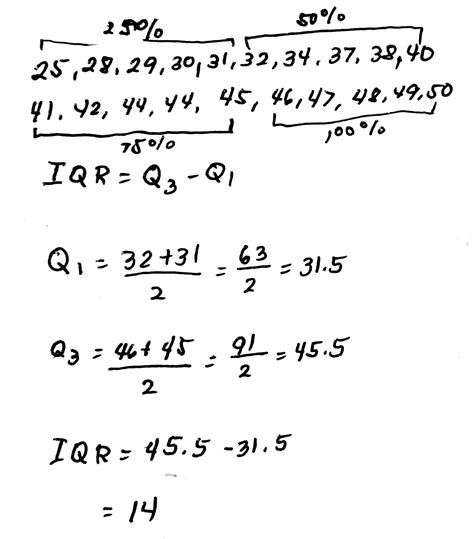 25% 50%
25, 28, 29, 30, 31, 32, 34, 37, 38, 40
41, 42, 44, 44, 45, 46, 47, 48, 49, 50
75% 100%
IQR = Q3 - Q1
Q1 = 32+31/2 = 63/2 = 31.5
Q3 = 46+45/2 = 91/2 = 45.5
IQR = 45.5 - 31.5
= 14